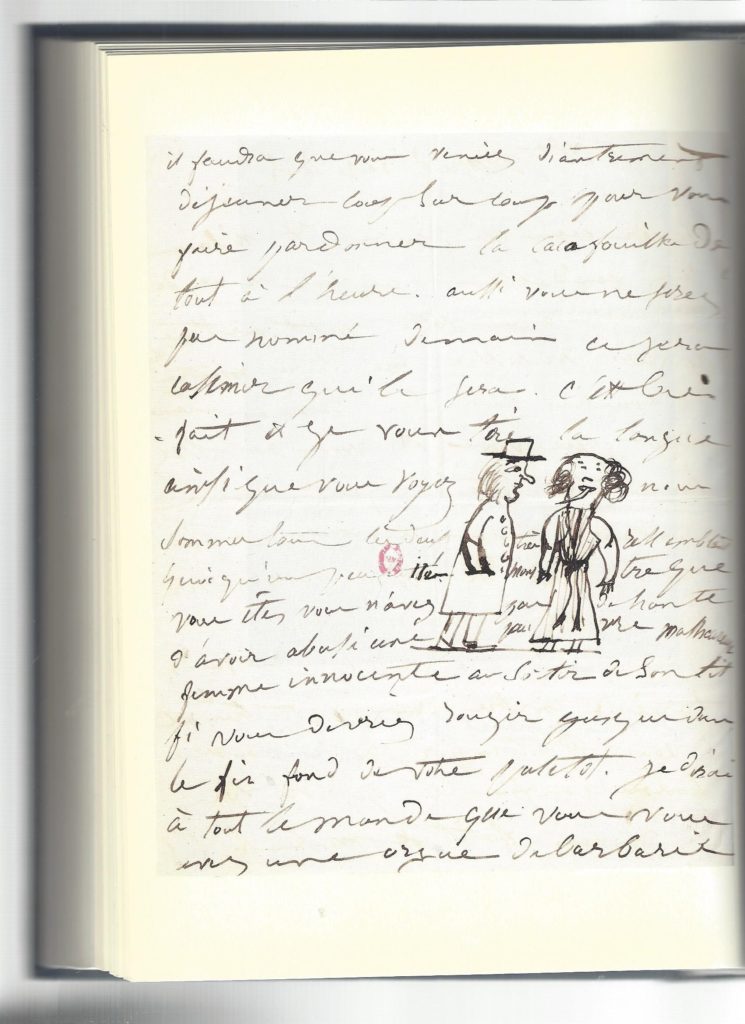 il faudra que vous veniez diantrement
déjeuner coup sur coup pour vous
faire pardonner la cacafouilka de
tout à l'heure. aussi vous ne serez
pas nommé demain ce sera
casimir qui le sera. c'est bien
fait et je vous tire la langue
ainsi que vous voyez nous
sommes tous les deux très ressemblans
quoiqu'un peu
vous êtes vous n'avez pas de honte
d'avoir abusé une pauvre malheureuse
femme innocente au sortir de son lit
fi vous devriez rougir jusque dans
le fin fond de votre paletot. je dirai
à tout le monde que vous vous
une orgue de barbarie